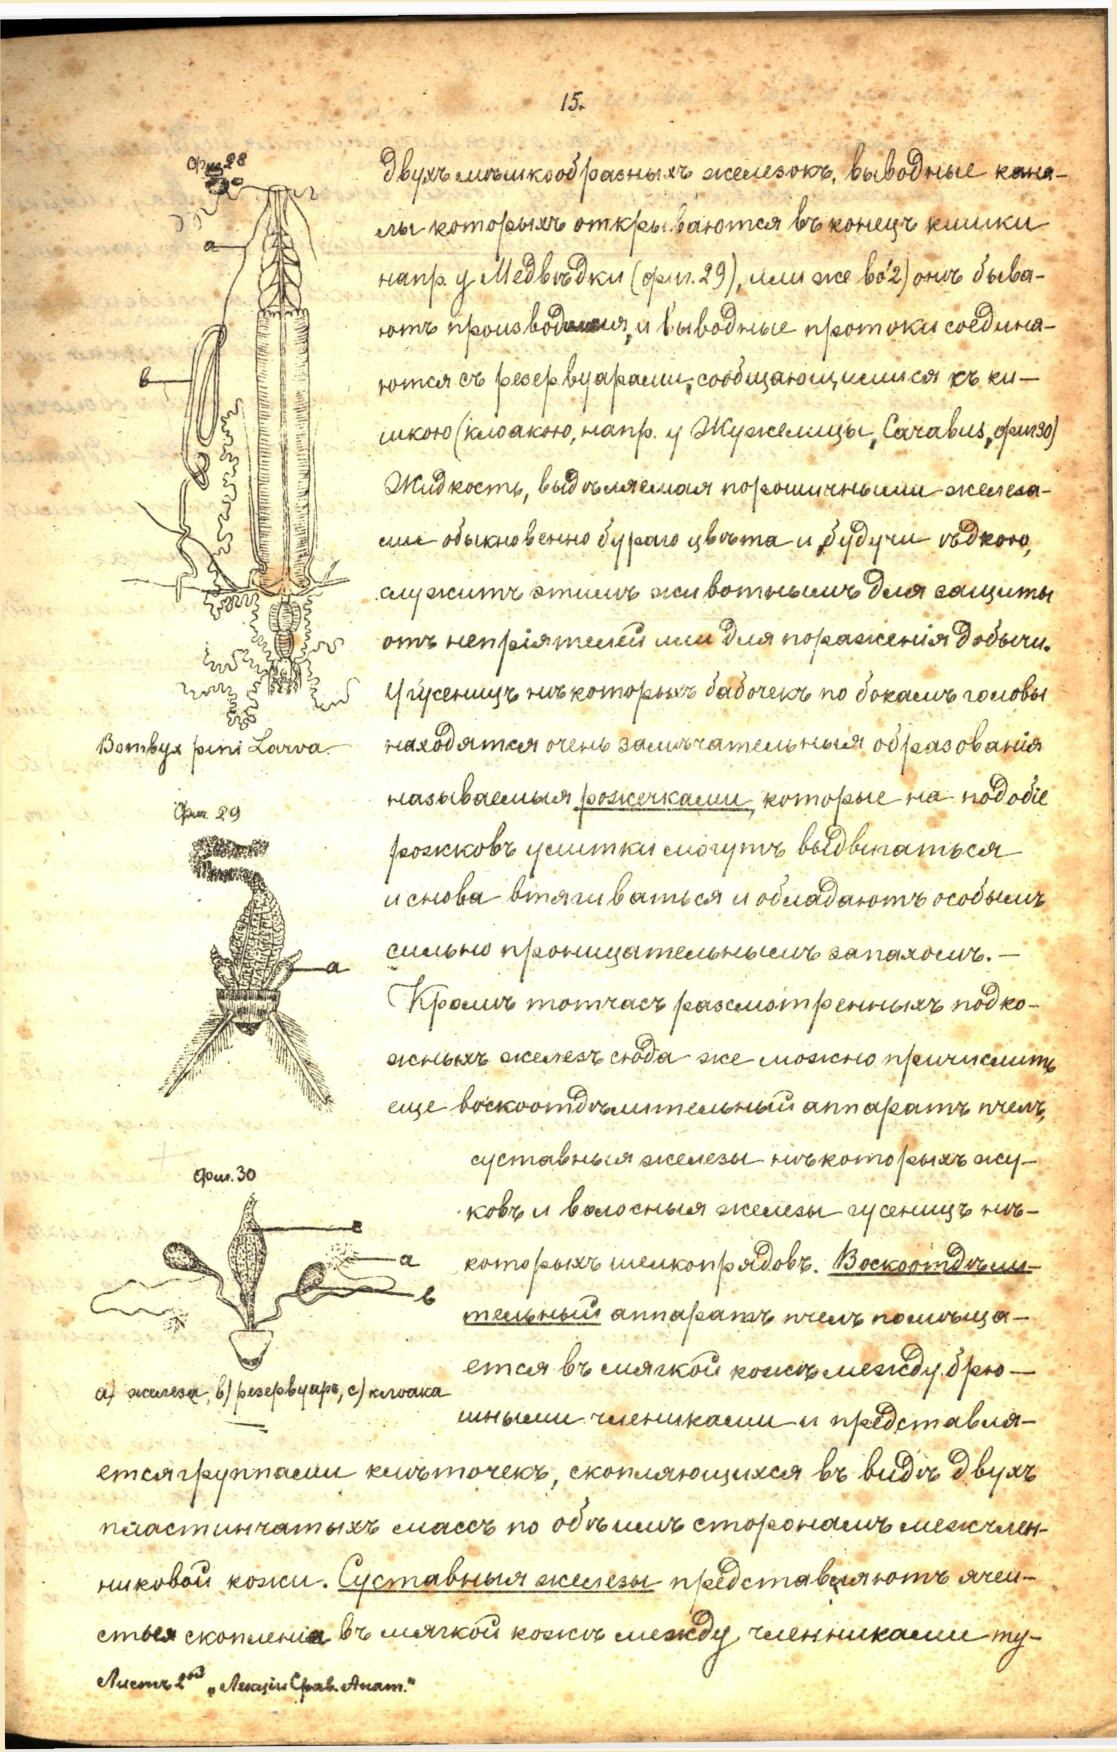 15.
Фиг. 28
а
в
Bombyx pini Larva.
Фиг. 29
а
Фиг. 30
с
а
в
а) железа, в) резервуаръ, с) клоака
двухъ мѣшкообразныхъ железокъ, выводные кана-
лы которыхъ открываются въ конецъ кишки
напр. у Медвѣдки (фиг. 29), или же во 2) онѣ быва-
ютъ и выводные протоки соединя-
ются съ резервуарами, сообщающимися съ ки-
шкою (клоакою, напр. у Жужелицы, Carabus, фиг 30)
Жидкость, выдѣляемая порошичными железа-
ми обыкновенно бураго цвѣта и, будучи ѣдкою,
служитъ этимъ животнымъ для защиты
отъ непріятелей или для пораженія добычи.
У гусеницъ нѣкоторыхъ бабочекъ по бокамъ головы
находятся очень замѣчательныя образованія
называемыя рожечками, которые на подобіе
рожковъ улитки могутъ выдвигаться
и снова втягиваться и обладаютъ особымъ
сильно проницательнымъ запахомъ. —
Кромѣ тотчасъ разсмотренныхъ подко-
жныхъ железъ сюда же можно причислить
еще воскоотдѣлительный аппаратъ пчелъ,
суставныя железы нѣкоторыхъ жу-
ковъ и волосныя железы гусеницъ нѣ-
которыхъ шелкопрядовъ. Воскоотдѣли-
тельный аппаратъ пчелъ помѣща-
ется въ мягкой кожѣ между брю-
шными члениками и представля-
ется группами клѣточекъ, скопляющихся въ видѣ двухъ
пластинчатыхъ массъ по обѣимъ сторонамъ межчлен-
никовой кожи. Суставныя железы представляютъ ячеи-
стыя скопленія въ мягкой кожѣ между членниками ту-
Листъ 2ой „Лекціи Срав. Анат."